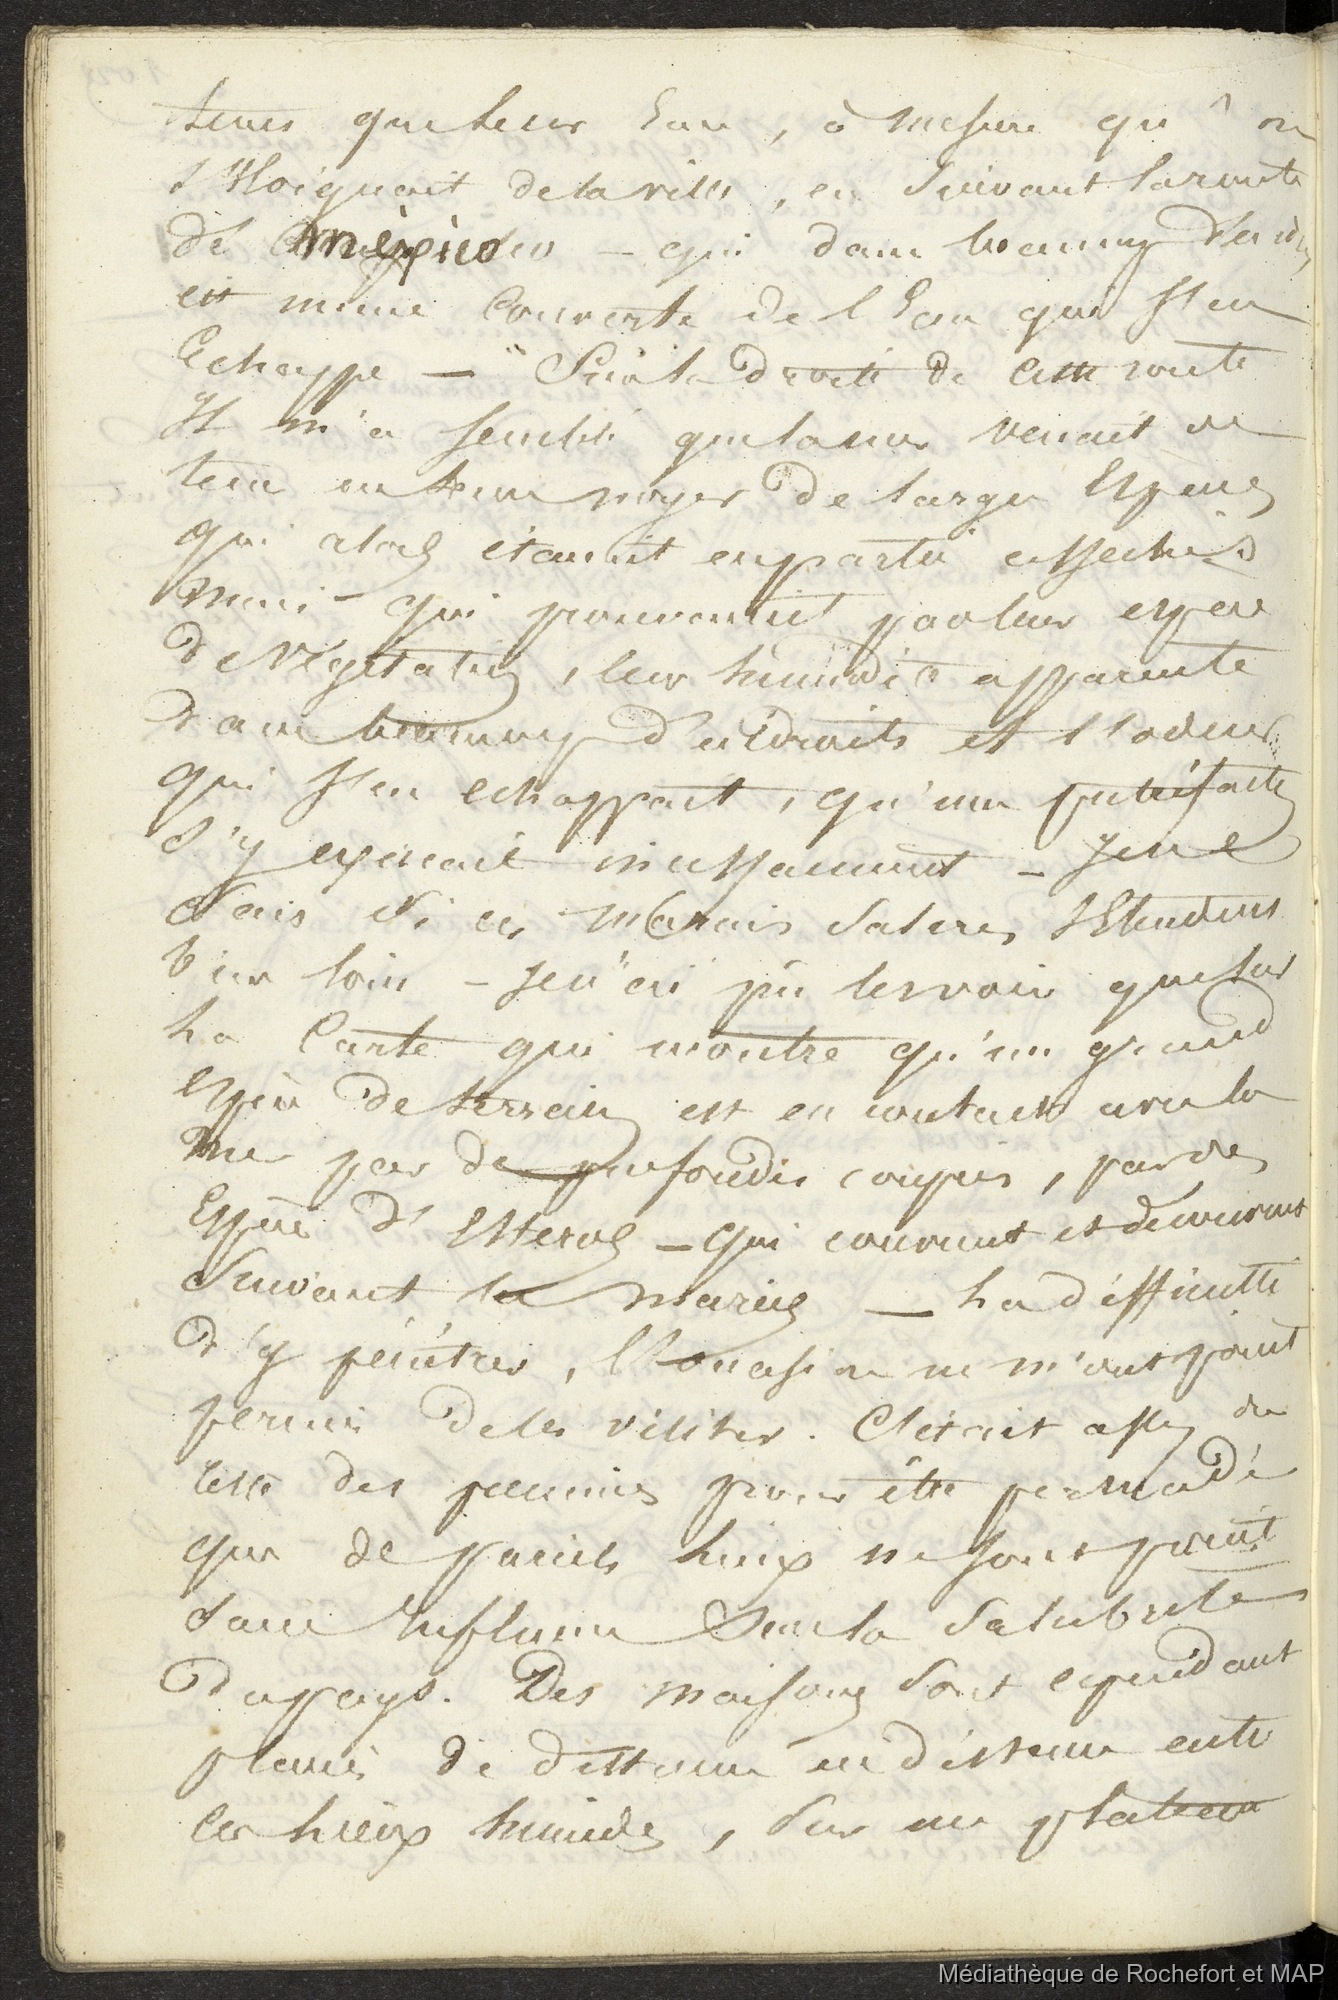 terres que leur Eau, à mesure qu'on
s'Eloignait de la ville, en suivant la route
de méxico - qui dans beaucoup d'endroits
est même couverte de l'Eau qui s'en
Echappe - Sur la droite de cette route
Il m'a semblé que la mer venait de
tems en tems noyer de larges Espaces
qui alors étaient en partie assechés
mais qui prouvaient par leur espece
de Végétation, leur humidité apparente
dans beaucoup d'endroits et l'odeur
qui s'en echappait, qu'une putréfaction
s'y exercait incessamment - Je ne
sais si ces Marais Salures s'Etendent
bien loin - Je n'ai pu les voir que sur
la Carte qui montre qu'un grand
espace de terrain est en contact avec la
mer par de profondes coupures, par des
Espece d'Esteros - qui couvrent et découvrent
Suivant la marée - La difficulté
d'y pénétrer, l'occasion ne m'ont point
permis de les visiter. C'était assez du
reste des premiers pour être persuadé
que de pareils lieux ne sont point
sans Influence Sur la Salubrité
du pays. Des maisons sont cependant
placées de distance en distance entre
ces lieux humides, Sur un plateau
Médiathèque de Rochefort et MAP